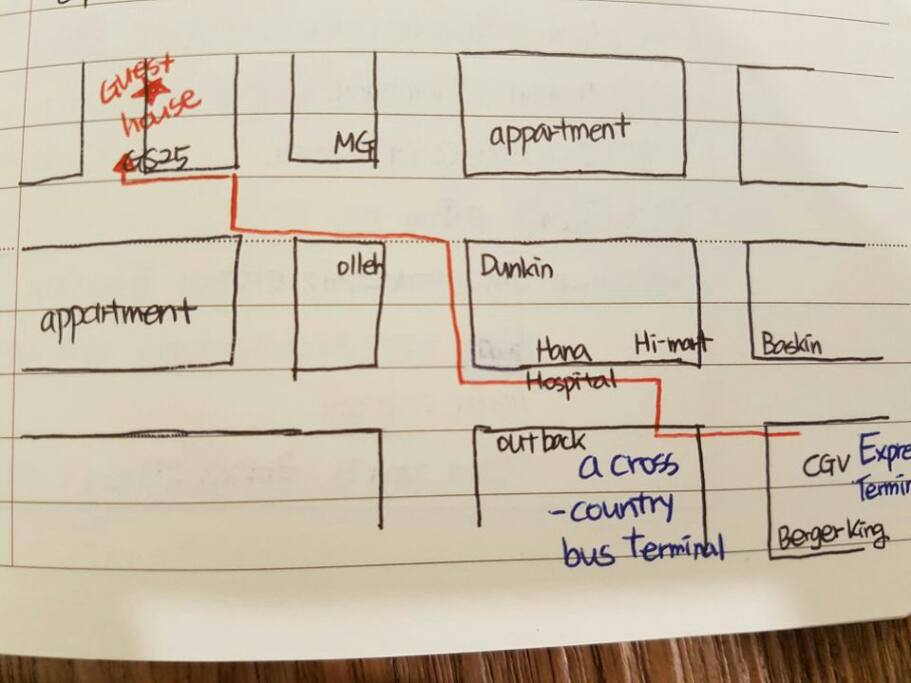 Guest
house
GS25
MG
appartment
appartment
olleh
Dunkin
Hana
Hospital
Hi-mart
Baskin
outback
a cross
-country
bus Terminal
CGV
Expre
Termin
Berger King